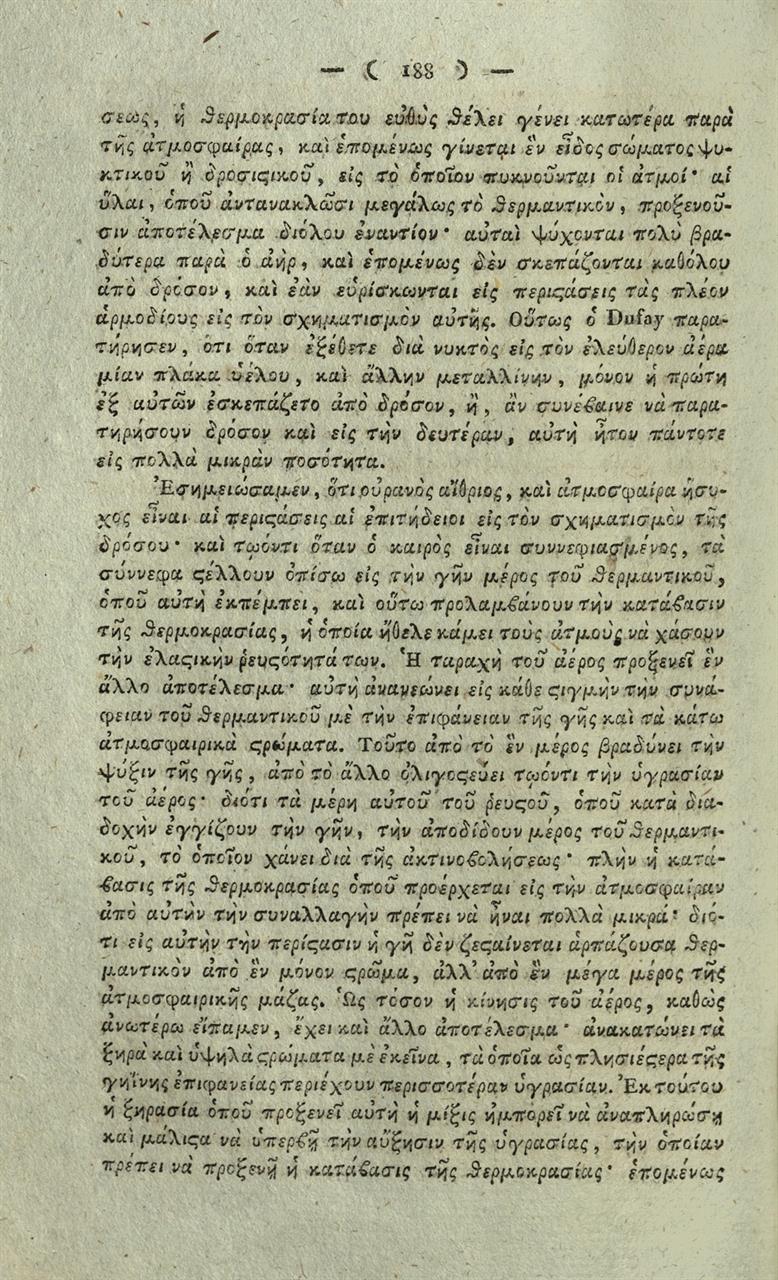 — ( 188 ) —
σεως, ἡ θερμοκρασία του εὐθὺς θέλει γένει κατωτέρα παρὰ
τῆς ἀτμοσφαίρας, καὶ ἑπομένως γίνεται ἓν εἶδος σώματος ψυ-
κτικοῦ ἢ δροσιϛικοῦ, εἰς τὸ ὁποῖον πυκνοῦνται οἱ ἀτμοί· αἱ
ὕλαι, ὁποῦ ἀντανακλῶσι μεγάλως τὸ θερμαντικὸν, προξενοῦ-
σιν ἀποτέλεσμα διόλου ἐναντίον· αὐταὶ ψύχονται πολὺ βρα-
δύτερα παρὰ ὁ ἀὴρ, καὶ ἑπομένως δὲν σκεπάζονται καθόλου
ἀπὸ δρόσον, καὶ ἐὰν εὑρίσκωνται εἰς περιϛάσεις τὰς πλέον
ἁρμοδίους εἰς τὸν σχηματισμὸν αὐτῆς. Οὕτως ὁ Dufay παρα-
τήρησεν, ὅτι ὅταν ἐξέθετε διὰ νυκτὸς εἰς τὸν ἐλεύθερον ἀέρα
μίαν πλάκα ὑέλου, καὶ ἄλλην μεταλλίνην, μόνον ἡ πρώτη
ἐξ αὐτῶν ἐσκεπάζετο ἀπὸ δρόσον, ἢ, ἂν συνέβαινε νὰ παρα-
τηρήσουν δρόσον καὶ εἰς τὴν δευτέραν, αὐτὴ ἦτον πάντοτε
εἰς πολλὰ μικρὰν ποσότητα.
Ἐσημειώσαμεν, ὅτι οὐρανὸς αἴθριος, καὶ ἀτμοσφαίρα ἥσυ-
χος εἶναι αἱ περιϛάσεις αἱ ἐπιτήδειοι εἰς τὸν σχηματισμὸν τῆς
δρόσου· καὶ τῳόντι ὅταν ὁ καιρὸς εἶναι συννεφιασμένος, τὰ
σύννεφα ϛέλλουν ὀπίσω εἰς τὴν γῆν μέρος τοῦ θερμαντικοῦ,
ὁποῦ αὐτὴ ἐκπέμπει, καὶ οὕτω προλαμβάνουν τὴν κατάβασιν
τῆς θερμοκρασίας, ἡ ὁποία ἤθελε κάμει τοὺς ἀτμοὺς νὰ χάσουν
τὴν ἐλαϛικὴν ῥευϛότητά των. Ἡ ταραχὴ τοῦ ἀέρος προξενεῖ ἓν
ἄλλο ἀποτέλεσμα· αὐτὴ ἀνανεώνει εἰς κάθε ϛιγμὴν τὴν συνά-
φειαν τοῦ θερμαντικοῦ μὲ τὴν ἐπιφάνειαν τῆς γῆς καὶ τὰ κάτω
ἀτμοσφαιρικὰ ϛρώματα. Τοῦτο ἀπὸ τὸ ἓν μέρος βραδύνει τὴν
ψύξιν τῆς γῆς, ἀπὸ τὸ ἄλλο ὀλιγοϛεύει τῳόντι τὴν ὑγρασίαν
τοῦ ἀέρος· διότι τὰ μέρη αὐτοῦ τοῦ ῥευϛοῦ, ὁποῦ κατὰ δια-
δοχὴν ἐγγίζουν τὴν γῆν, τὴν ἀποδίδουν μέρος τοῦ θερμαντι-
κοῦ, τὸ ὁποῖον χάνει διὰ τῆς ἀκτινοβολήσεως· πλὴν ἡ κατά-
βασις τῆς θερμοκρασίας ὁποῦ προέρχεται εἰς τὴν ἀτμοσφαίραν
ἀπὸ αὐτὴν τὴν συναλλαγὴν πρέπει νὰ ἦναι πολλὰ μικρά· διό-
τι εἰς αὐτὴν τὴν περίϛασιν ἡ γῆ δὲν ζεϛαίνεται ἁρπάζουσα θερ-
μαντικὸν ἀπὸ ἓν μόνον ϛρῶμα, ἀλλ' ἀπὸ ἓν μέγα μέρος τῆς
ἀτμοσφαιρικῆς μάζας. Ὡς τόσον ἡ κίνησις τοῦ ἀέρος, καθὼς
ἀνωτέρω εἴπαμεν, ἔχει καὶ ἄλλο ἀποτέλεσμα· ἀνακατώνει τὰ
ξηρὰ καὶ ὑψηλὰ ϛρώματα μὲ ἐκεῖνα, τὰ ὁποῖα ὡς πλησιέϛερα τῆς
γηΐνης ἐπιφανείας περιέχουν περισσοτέραν ὑγρασίαν. Ἐκ τούτου
ἡ ξηρασία ὁποῦ προξενεῖ αὐτὴ ἡ μίξις ἠμπορεῖ νὰ ἀναπληρώσῃ
καὶ μάλιϛα νὰ ὑπερβῇ τὴν αὔξησιν τῆς ὑγρασίας, τὴν ὁποίαν
πρέπει νὰ προξενῇ ἡ κατάβασις τῆς θερμοκρασίας· ἑπομένως